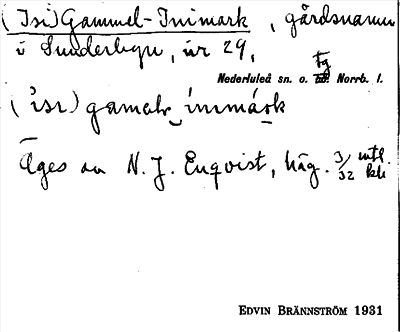 (Isi)Gammel-Inimark, gårdsnamn
i Sunderbyn, nr 29,
Nederluleå sn. o. tg Norrb. l.
Äges av N. J. Enqvist, häg. 3/32 mtl.
EDVIN BRÄNNSTRÖM 1931